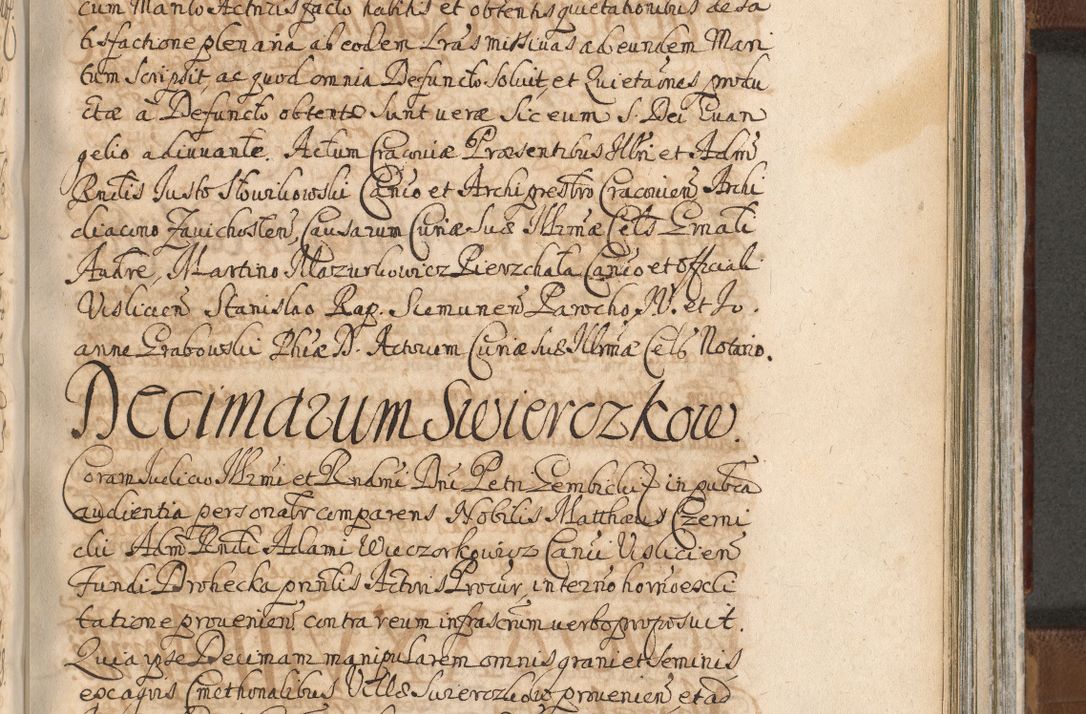 cum Manlo Actnris facto habitis et obtentis quietationibus de sa
tisfactione plenaria ab eodem Lrâs missivas ad eundem Mari
tum Scripsit, ac quod omnia Defuncto soluit, et Quietaōnes produ
ctæ à Defuncto obtentæ sunt veræ Sic eum S. Dei Evan
gelio adiuvante. Actum Cracoviæ Præsentibus Illri et Adm̄
Rndis Iusto Słowikowski Canco et Archipresbro Cracovien̄ Archi
diacono Zavichosten̄, Causarum Curiæ Suæ Illrmæ Cels Gnali
Audre, Martino Mazurkowicz Pierzchała Canco et Officiali
Vislicien̄ Stanislao Rap. Siemunen̄ Parocho, N. et Jo
anne Grabowski Phiæ D. Actorum Curiæ Suæ Illrmæ Cels Notario.
Decimarum Swierczkow.
Coram Iudicio Illrmi et Rndmi Dni Petri Gembicki in publca
audientia personalr comparens Nobilis Matthæus Czerni
cki Adm̄ Rndi Adami Wieczorkowicz Canci Vislicien̄
Fundi Drohecka pnntis Actoris Procur, in termo hornoexci
tatione provenien̄. contra reum infrascrum verbo proposuit.
Quia ipse Decimam manipularem omnis grani et seminis
ex agris Cmethonalibus Villæ Swierczkow provenien̄ et ad